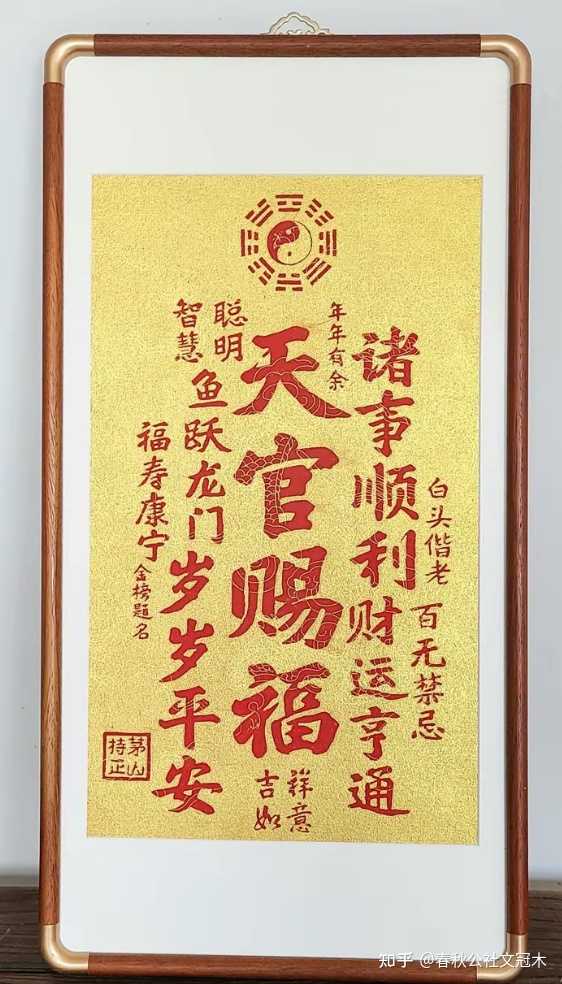 白头偕老 百无禁忌
诸事顺利财运亨通
年年有余
天官赐福
吉祥如意
聪明
智慧
鱼跃龙门
岁岁平安
福寿康宁
金榜题名
茅山
持正
知乎 @春秋公社文冠木